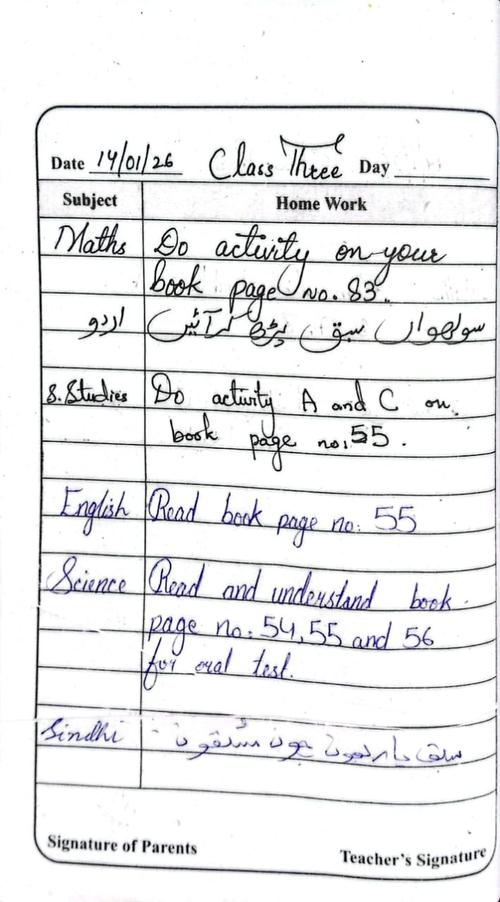 Date 14/01/26 Class Three Day
Subject Home Work
Maths Do activity on your
book page no. 83.
اردو سولھواں سبق پڑھ کر آئیں
S.Studies Do activity A and C on
book page no. 55.
English Read book page no. 55
Science Read and understand book
page no. 54, 55 and 56
for oral test.
Sindhi سبق جون مشقون
Signature of Parents Teacher's Signature